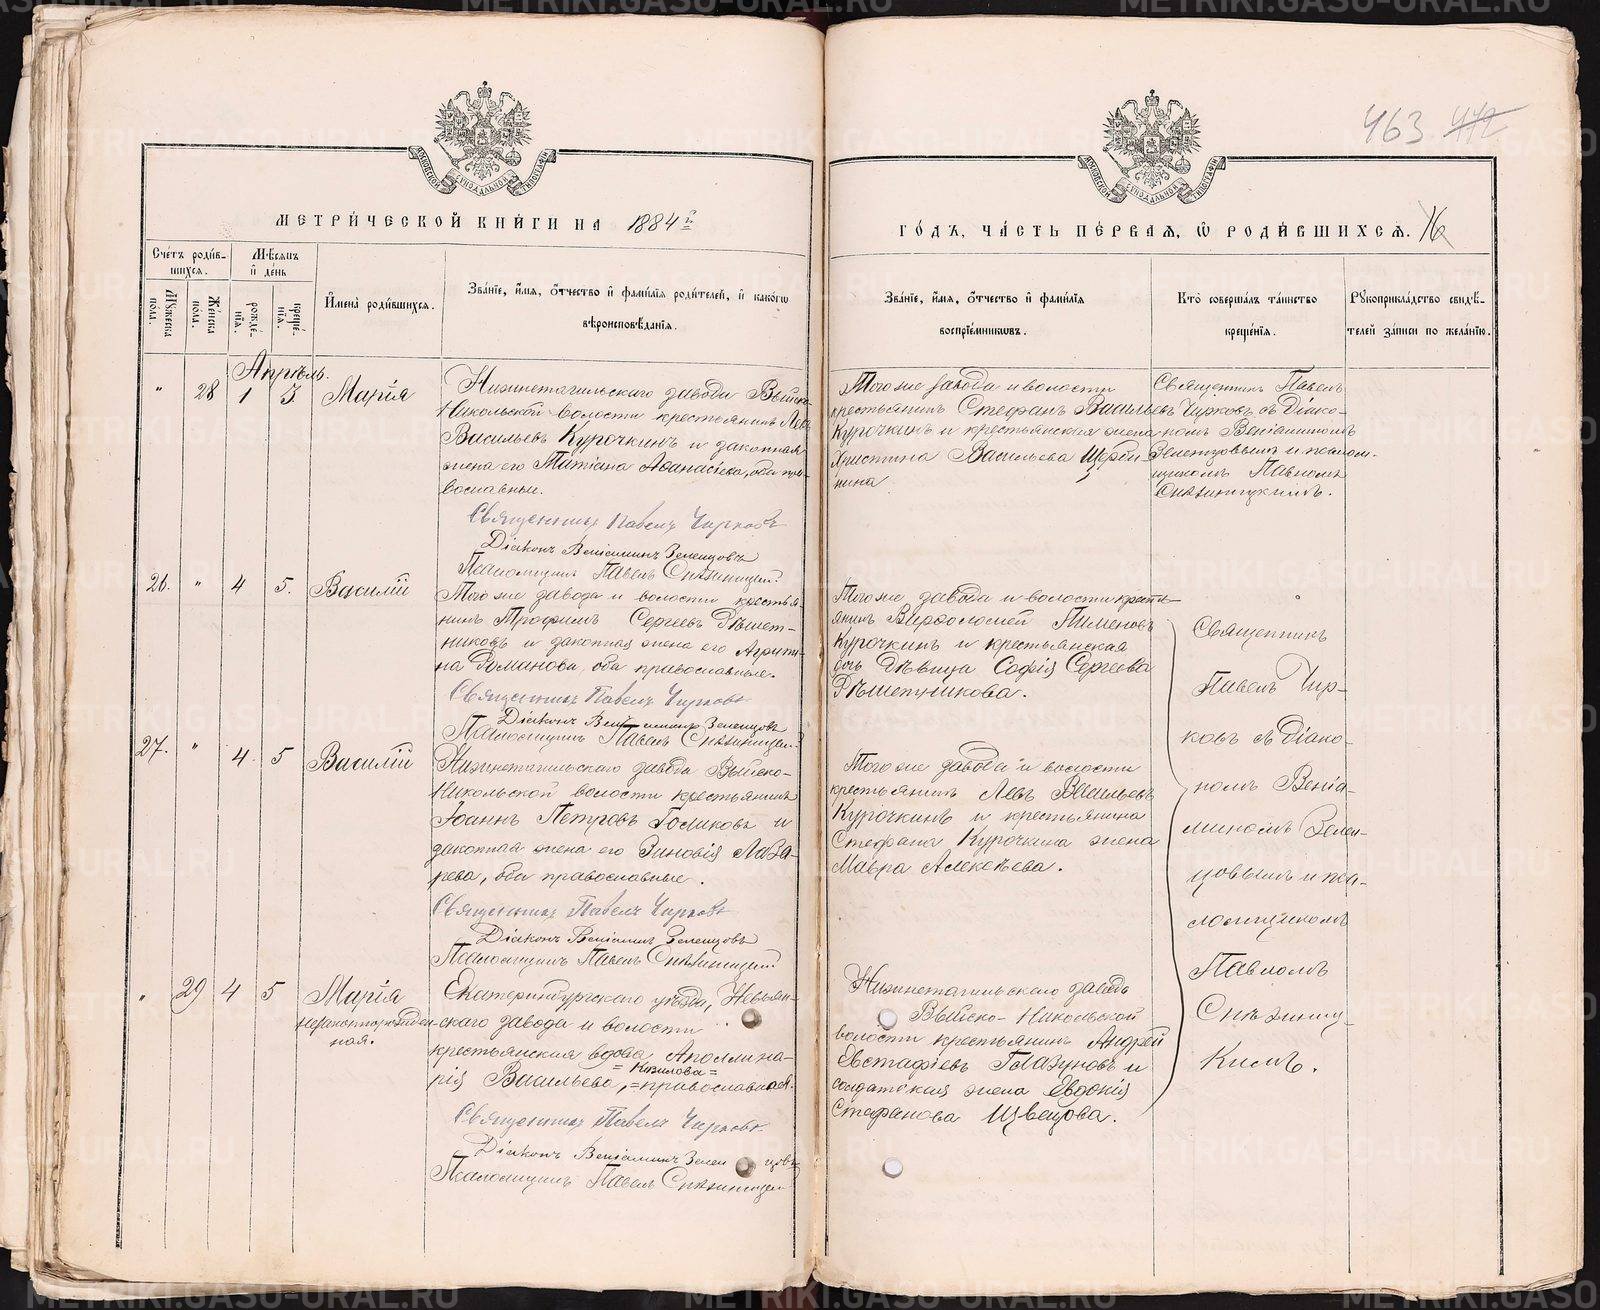 463 472
МЕТРИ́ЧЕСКОЙ КНИ́ГИ НА 1884й
ГО́ДЪ, ЧА́СТЬ ПЕ́РВАЯ, Ѡ РОДИ́ВШИХСЯ. 16
Сче́тъ роди́в-
шихся.
Мѣсяцъ
и де́нь
Му́жеска
по́ла.
Же́нска
по́ла.
рожде́-
нія.
креще́-
нія.
Имена̀ роди́вшихся.
Зва́ніе, и́мя, о́тчество и фами́лія роди́телей, и како́гѡ
вѣроисповѣ́данія.
Зва́ніе, и́мя, о́тчество и фами́лія
воспріе́мниковъ.
Кто̀ соверша́лъ та́инство
креще́нія.
Рукоприкла́дство свидѣ́-
телей за́писи по жела́нію.
Апрѣль.
" 28 1 3 Марія
Нижнетагильскаго завода Выйско-
Никольской волости крестьянинъ Левъ
Васильевъ Курочкинъ и законная
жена его Татіана Аѳанасіева, оба пра-
вославные.
Священникъ Павелъ Чирковъ
Діаконъ Веніаминъ Зеленцовъ
Псаломщикъ Павелъ Снѣжницкій
Тогоже завода и волости
крестьянинъ Стефанъ Васильевъ
Курочкинъ и крестьянская жена
Христина Васильева
Священникъ Павелъ
Чирковъ съ Діако-
номъ Веніаминомъ
Зеленцовымъ и псалом-
щикомъ Павломъ
Снѣжницкимъ.
26. " 4 5. Василій
Тогоже завода и волости крестья-
нинъ Трофимъ Сергеевъ Рѣшет-
никовъ и законная жена его Агрипи-
на Романова, оба православные.
Священникъ Павелъ Чирковъ
Діаконъ Веніаминъ Зеленцовъ
Псаломщикъ Павелъ Снѣжницкій
Тогоже завода и волости кресть-
янинъ Варфоломей Пименовъ
Курочкинъ и крестьянская
дочь дѣвица Софія Сергеева
Рѣшетникова.
27. " 4 5 Василій
Нижнетагильскаго завода Выйско-
Никольской волости крестьянинъ
Іоаннъ Петровъ Голиковъ и
законная жена его Зиновія Лаза-
рева, оба православные.
Священникъ Павелъ Чирковъ
Діаконъ Веніаминъ Зеленцовъ
Псаломщикъ Павелъ Снѣжницкій
Тогоже завода и волости
крестьянинъ Левъ Васильевъ
Курочкинъ и крестьянина
Стефана Курочкина жена
Мавра Алексѣева.
" 29 4 5 Марія
незаконнорожден-
ная.
Екатеринбургскаго уѣзда, Невьян-
скаго завода и волости
крестьянская вдова Аполлина-
рія Васильева, =православная.
Священникъ Павелъ Чирковъ
Діаконъ Веніаминъ Зеленцовъ
Псаломщикъ Павелъ Снѣжницкій
Нижнетагильскаго завода
Выйско-Никольской
волости крестьянинъ Андрей
Евстафіевъ Глазуновъ и
солдатская жена Евдокія
Стефанова Швецова.
Священникъ
Павелъ Чир-
ковъ съ Діако-
номъ Веніа-
миномъ Зелен-
цовымъ и пса-
ломщикомъ
Павломъ
Снѣжниц-
кимъ.
METRIKI.GASO-URAL.RU